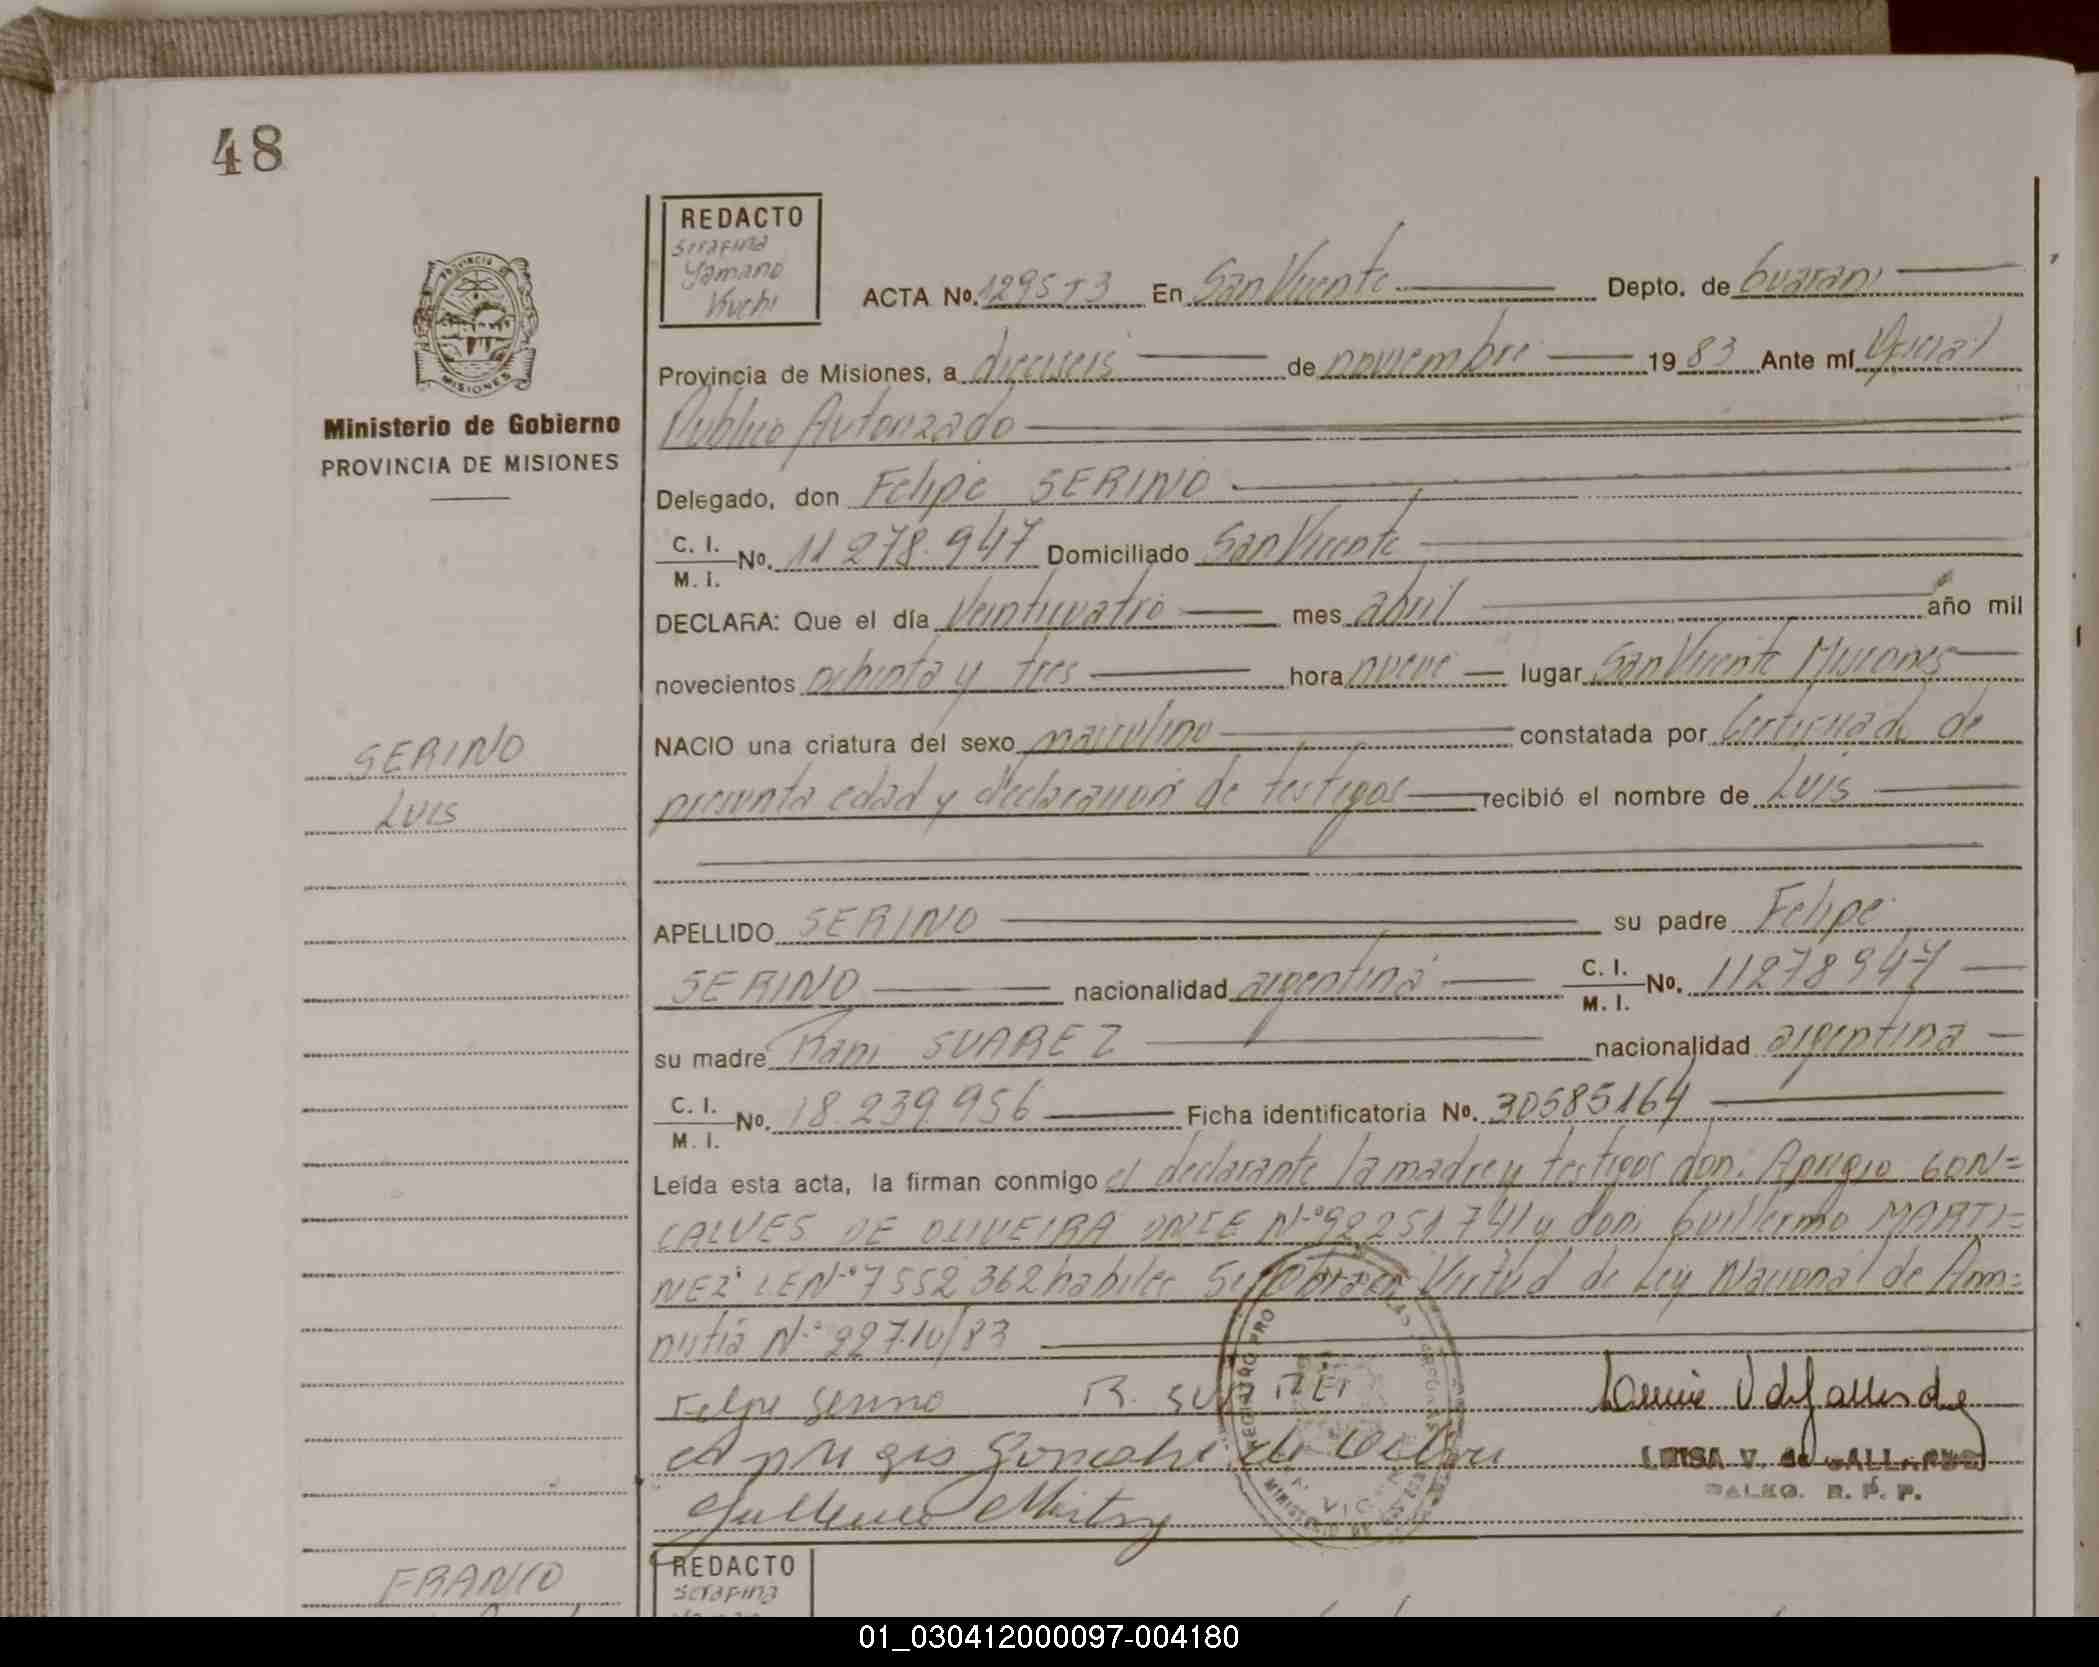 48
REDACTO
Serafina
Yamano
Kiuchi
ACTA No. 1295 T3 En San Vicente Depto. de Guarani
PROVINCIA DE
MISIONES
Ministerio de Gobierno
PROVINCIA DE MISIONES
Provincia de Misiones, a dieciseis de noviembre 1983 Ante mí Oficial
Publico Autorizado
Delegado, don Felipe SERINO
C. I. / M. I. No. 11 278.947 Domiciliado San Vicente
DECLARA: Que el día Veinticuatro mes abril año mil
novecientos ochenta y tres hora nueve lugar San Vicente Misiones
NACIO una criatura del sexo masculino constatada por Certificado de
presunta edad y declaracion de testigos recibió el nombre de Luis
SERINO
LUIS
APELLIDO SERINO su padre Felipe
SERINO nacionalidad argentina C. I. / M. I. No. 11278947
su madre Rani SUAREZ nacionalidad argentina
C. I. / M. I. No. 18.239.956 Ficha identificatoria No. 30585164
Leída esta acta, la firman conmigo el declarante la madre y testigos don: Aprigio GON=
CALVES DE OLIVEIRA DNIE Nº 92251741 y don: Guillermo MARTI=
NEZ LE Nº 7552362 habiles Se labra en Virtud de Ley Nacional de Am=
nistia Nº 22710/83
Felipe Serino R. SUAREZ
Aprigio Goncalve de
Guillermo
LUISA V. de GALLARDO
R. P. P.
FRANCO
REDACTO
Serafina
01_030412000097-004180